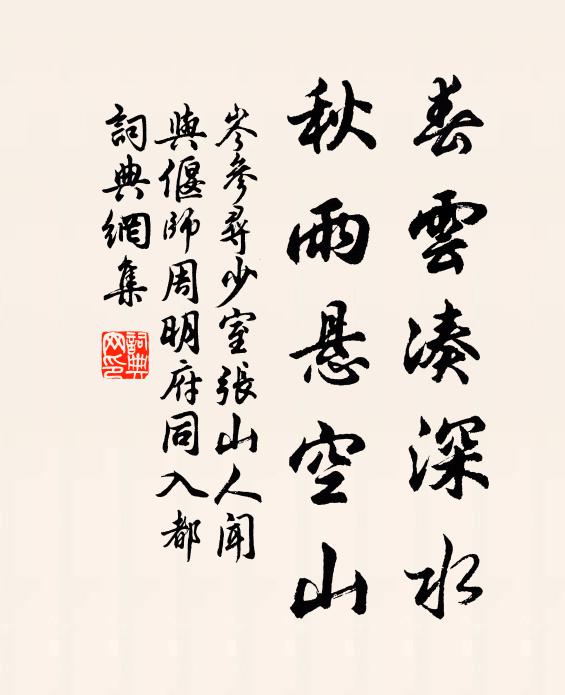 春雲湊深水
秋雨悬空山
岑參尋少室張山人聞
與偃師周明府同入都
詞典網集
詞典网印